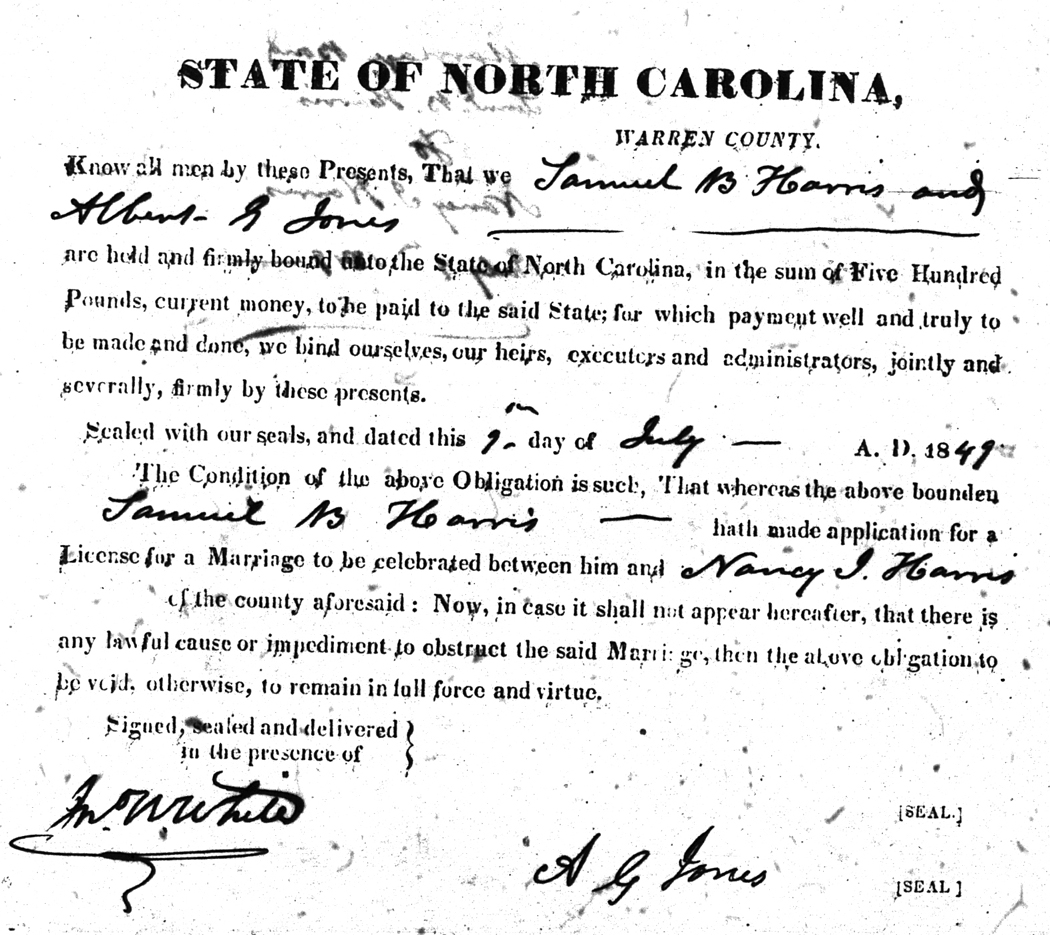 STATE OF NORTH CAROLINA,
WARREN COUNTY.
Know all men by these Presents, That we Samuel B Harris and
Albert G Jones
are held and firmly bound unto the State of North Carolina, in the sum of Five Hundred
Pounds, current money, to be paid to the said State; for which payment well and truly to
be made and done, we bind ourselves, our heirs, executors and administrators, jointly and
severally, firmly by these presents.
Sealed with our seals, and dated this 9th day of July — A. D. 1849
The Condition of the above Obligation is such, That whereas the above bounden
Samuel B Harris — hath made application for a
License for a Marriage to be celebrated between him and Nancy I. Harris
of the county aforesaid: Now, in case it shall not appear hereafter, that there is
any lawful cause or impediment to obstruct the said Marriage, then the above obligation to
be void, otherwise, to remain in full force and virtue.
Signed, sealed and delivered }
in the presence of
Jno W White
[SEAL.]
A G Jones [SEAL]